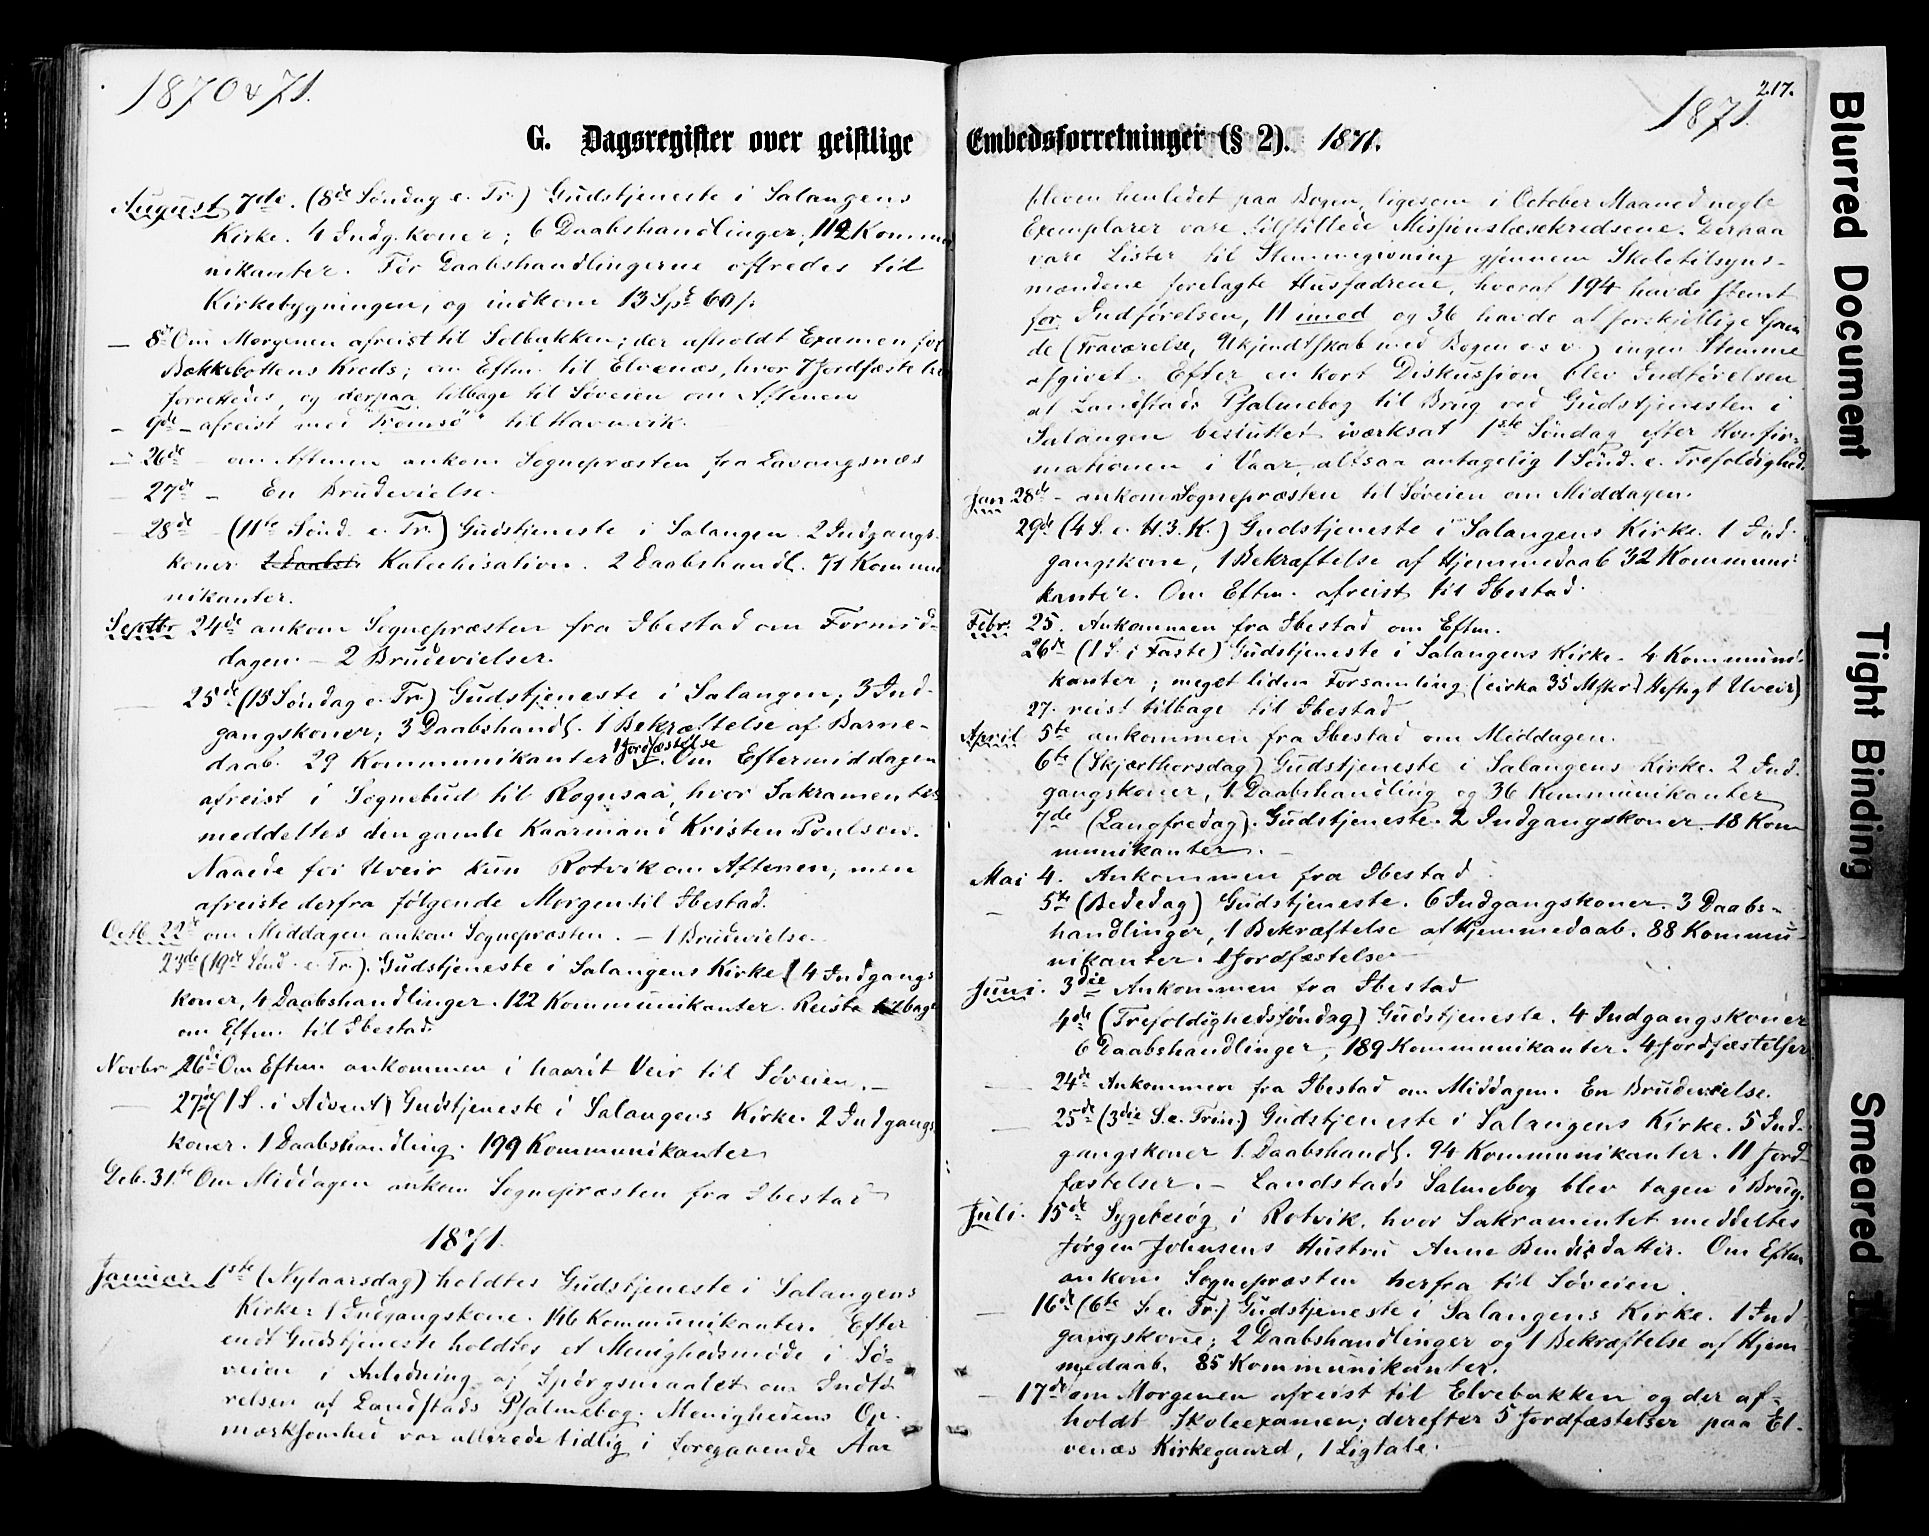 1870 & 71.
G. Dagsregister over geistlige
August 7de. (8de Søndag e. Tr.) Gudstjeneste i Salangens
Kirke. 4 Indg.koner; 6 Daabshandlinger; 112 Kommu
nikanter. Før Daabshandlingerne ofredes til
Kirkebygningen, og indkom 13 Spd 60 s.
— 8de Om Morgenen afreist til Selbakken; der afholdt Examen for
Bakkebottens Kreds; om Eftm. til Elvenæs, hvor 7 Jordfæstelser
forrettedes, og derpaa tilbage til Søveien om Aftenen
— 9de – afreist med "Tromsö" til Havnvik.
— 26de – om Aftenen ankom Sognepræsten fra Lavangsnæs
— 27de – En Brudevielse.
— 28de – (11te Sønd. e. Tr.) Gudstjeneste i Salangen. 2 Indgangs-
koner 2 Daabsh. Katechisation. 2 Daabshandl. 71 Kommu
nikanter.
Septbr 24de ankom Sognepræsten fra Ibestad om Formid-
dagen. – 2 Brudevielser.
— 25de (15 Søndag e. Tr.) Gudstjeneste i Salangen; 3 Ind-
gangskoner; 3 Daabshandl. 1 Bekræftelse af Barne-
daab. 29 Kommunikanter 1 Jordfæstelse. Om Eftermiddagen
afreist i Sognebud til Rognsaa, hvor Sakramentet
meddeltes den gamle Kaarmand Kristen Poulsen.
Naaede for Uveir kun Rotvik om Aftenen, men
afreiste derfra følgende Morgen til Ibestad.
Octb. 22de om Middagen ankom Sognepræsten. – 1 Brudevielse
23de (19de Sønd. e. Tr.). Gudstjeneste i Salangens Kirke 4 Indgangs
koner, 4 Daabshandlinger. 122 Kommunikanter. Reiste tilbage
om Eftm. til Ibestad.
Novbr 26de Om Eftm ankommen i haardt Veir til Søveien. –
— 27de (1 S. i Advent) Gudstjeneste i Salangens Kirke. 2 Indgangs
koner. 1 Daabshandling. 199 Kommunikanter
Deb. 31te Om Middagen ankom Sognepræsten fra Ibestad
1871.
Januar 1ste (Nytaarsdag) holdtes Gudstjeneste i Salangens
Kirke: 1 Indgangskone. 146 Kommunikanter. Efter
endt Gudstjeneste holdtes et Menighedsmøde i Sø-
veien i Anledning af Spörgsmaalet om Indfø
relsen af Landstads Psalmebog. Menighedens Op-
mærksomhed var allerede tidlig i foregaaende Aar
217.
1871.
Embedsforretninger (§ 2). 1871.
bleven henledet paa Bogen, ligesom i October Maaned nogle
Exemplarer vare tilstillede Missionslæsekredsene. Derpaa
vare Lister til Stemmegivning gjennem Skoletilsyns-
mændene forelagte Husfædrene, hvoraf 194 havde stemt
for Indførelsen, 11 imod og 36 havde af forskjellige Grun
de (Fraværelse, Ukjendtskab med Bogen o.s.v.) ingen Stemme
afgivet. Efter en kort Diskussion blev Indførelsen
af Landstads Psalmebog til Brug ved Gudstjenesten i
Salangen besluttet iværksat 1ste Søndag efter Konfir-
mationen i Vaar, altsaa antagelig 1 Sönd. e. Trefoldighed.
Jan 28de – ankom Sognepræsten til Søveien om Middagen.
29de (4 S. e. H. 3. K.) Gudstjeneste i Salangens Kirke. 1 Ind-
gangskone, 1 Bekræftelse af Hjemmedaab 32 Kommuni-
kanter. Om Eftm. afreist til Ibestad.
Febr. 25. Ankommen fra Ibestad om Eftm.
26de (1 S. i Faste) Gudstjeneste i Salangens Kirke. 4 Kommuni-
kanter; meget liden Forsamling (cirka 35 Msker) Heftigt Uveir)
27. reist tilbage til Ibestad
April 5te ankommen fra Ibestad om Middagen.
6te (Skjærthorsdag) Gudstjeneste i Salangens Kirke. 2 Ind-
gangskoner, 1 Daabshandling og 36 Kommunikanter
7de (Langfredag). Gudstjeneste. 2 Indgangskoner. 18 Kom
munikanter. –
Mai 4. Ankommen fra Ibestad
— 5te (Bededag) Gudstjeneste. 6 Indgangskoner. 3 Daabs-
handlinger, 1 Bekræftelse af Hjemmedaab. 88 Kommu-
nikanter. 1 Jordfæstelse
Juni. 3die Ankommen fra Ibestad
4de (Trefoldighedssøndag) Gudstjeneste. 4 Indgangskoner
6 Daabshandlinger, 189 Kommunikanter. 4 Jordfæstelser
— 24de Ankommen fra Ibestad om Middagen. En Brudevielse.
— 25de (3die S. e. Trin.) Gudstjeneste i Salangens Kirke. 5 Ind-
gangskoner 1. Daabshandl. 94 Kommunikanter. 11 Jord-
fæstelser. – Landstads Salmebog blev tagen i Brug.
Juli. 15de Sygebesøg i Rotvik, hvor Sakramentet meddeltes
Jørgen Johnsens Hustru Anne Bendixdatter. Om Eftm
ankom Sognepræsten herfra til Søveien.
— 16de (6te S. e. Tr.) Gudstjeneste i Salangens Kirke. 1 Ind
gangskone; 2 Daabshandlinger og 1 Bekræftelse af Hjem
medaab. 85 Kommunikanter.
— 17de om Morgenen afreist til Elvebakken og der af-
holdt Skoleexamen; derefter 5 Jordfæstelser paa El-
venæs Kirkegaard, 1 Ligtale.
Blurred Document
Tight Binding
Smeared